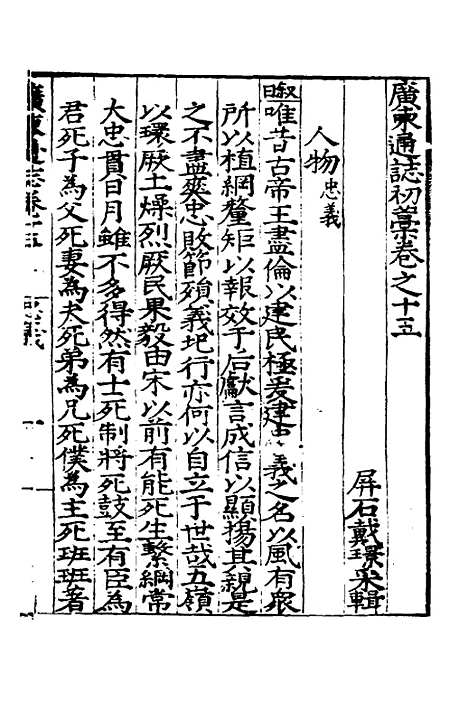 廣東通誌初藁卷之十五
屏石戴璟采輯
人物忠義
叙曰唯昔古帝王盡倫以建民極爰建 義之名以風有衆
所以植綱釐矩以報效于后獻言成信以顯揚其親是
之不盡爽忠敗節殞義圯行亦何以自立于世哉五嶺
以環厥土燥烈厥民果毅由宋以前有能死生繫綱常
大忠貫日月雖不多得然有士死制將死鼓至有臣為
君死子為父死妻為夫死弟為兄死僕為主死班班著
廣東通誌卷十五 忠義 一